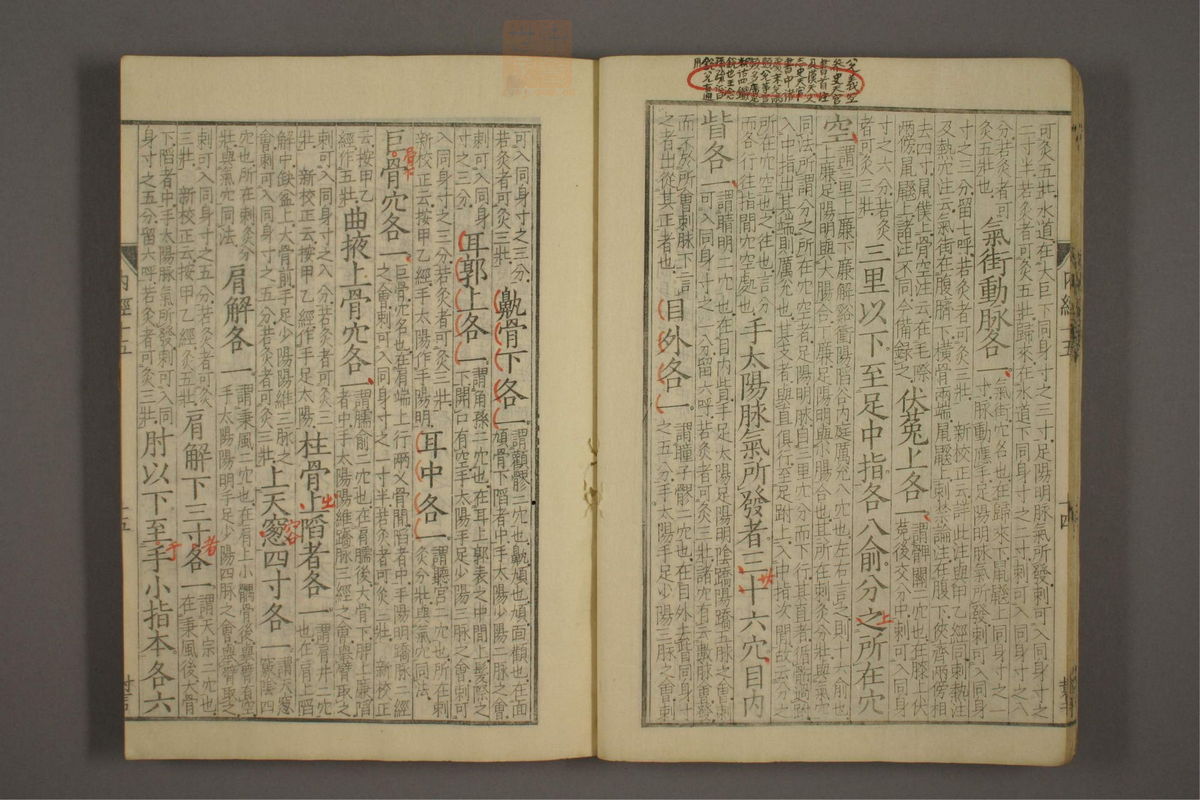 可灸五壯水道在大巨下同身寸之三寸足陽明脉氣所發刺可入同身寸之
二寸半若灸者可灸五壯歸來在水道下同身寸之二寸刺可入同身寸之八
分若灸者可
灸五壯也
氣街動脉各一
氣街穴名也在歸來下鼠鼷上同身寸之一
寸脉動應手足陽明脉氣所發刺可入同身
寸之三分留七呼若灸者可灸三壯 新校正云詳此注與甲乙經同刺熱注
及熱穴注云氣街在腹臍下橫骨兩端鼠鼷上刺禁論注在腹下俠齊兩傍相
去四寸鼠僕上骨空注云在毛際
兩傍鼠鼷上諸注不同今備錄之
伏菟上各一
謂髀關二穴也在膝上伏
菟後交分中刺可入同身
寸之六分若灸
者可灸三壯
三里以下至足中指各八俞分之所在穴
上
空
謂三里上廉下廉解谿衝陽陷谷內庭厲兌八穴也左右言之則十六俞也
上廉足陽明與大腸合下廉足陽明與小腸合也其所在刺灸分壯與氣穴
同法所謂分之所在穴空者足陽明脉自三里穴分而下行其直者循䯒過跗
入中指出其端則厲兌也其支者與直俱行至足跗上入中指次外間故云分之
所在穴空也之往也言分
而各行往指間穴空處也
手太陽脉氣所發者三十六穴目內
眥各一
謂睛明二穴也在目內眥手足太陽足陽明陰蹻陽蹻五脉之會刺
可入同身寸之一分留六呼若灸者可灸三壯諸穴有云數脉會發
而不於所會刺脉下言
之者出從其正者也
目外各一
謂瞳子髎二穴也在目外去眥同身寸
之五分手太陽手足少陽三脉之會刺
內經十五
十四
可入同身寸之三分
若灸者可灸三壯
鼽骨下各一
謂顴髎二穴也鼽頄也頄面顴也在面
頄骨下陷者中手太陽少陽二脉之會
刺可入同身
寸之三分
耳郭上各一
謂角孫二穴也在耳上郭表之中間上髮際之
下開口有空手太陽手足少陽三脉之會刺可
入同身寸之三分若灸者可灸三壯
新校正云按甲乙經手太陽作手陽明
耳中各一
謂聽宮二穴也所在刺
灸分壯與氣穴同法
巨骨穴各一
骨下
巨骨穴名也在肩端上行兩叉骨間陷者中手陽明蹻脉二經
之會刺可入同身寸之一寸半若灸者可灸三壯 新校正
云按甲乙
經作五壯
曲掖上骨穴各一
謂臑俞二穴也在肩臑後大骨下胛上廉陷
者中手太陽陽維蹻脉三經之會舉臂取之
刺可入同身寸之八分若灸者可灸三
壯 新校正云按甲乙經作手足太陽
柱骨上陷者各一
出
謂肩井二穴
也在肩上陷
解中缺盆上大骨前手足少陽陽維三脉之
會刺可入同身寸之五分若灸者可灸三壯
上天窻四寸各一
容
謂天窻
竅陰四
穴也所在刺灸分
壯與氣穴同法
肩解各一
謂秉風二穴也在肩上小髃骨後舉臂有空
手太陽陽明手足少陽四脉之會舉臂取之
刺可入同身寸之五分若灸者可灸
三壯 新校正云按甲乙經灸五壯
肩解下三寸各一
者
謂天宗二穴也
在秉風後大骨
下陷者中手太陽脉氣所發刺可入同
身寸之五分留六呼若灸者可灸三壯
肘以下至手小指本各六
于
內經十五
十五